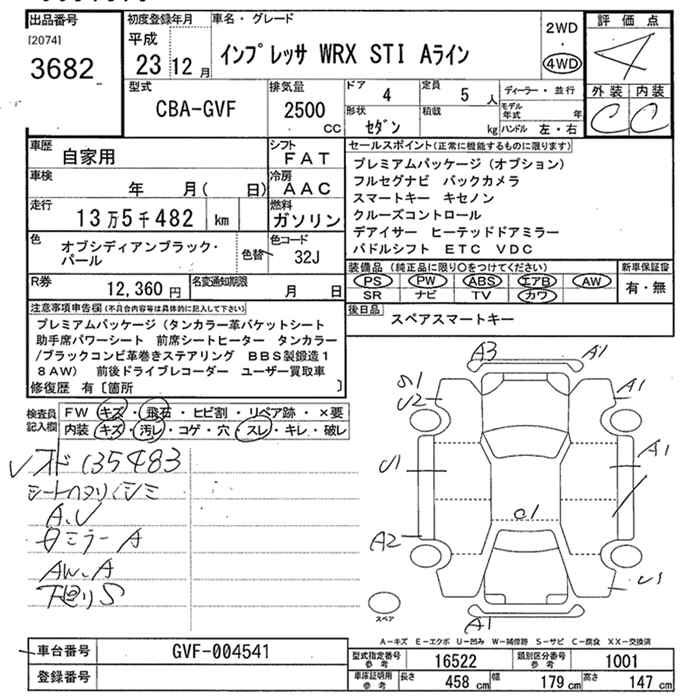 出品番号
[2074]
3682
初度登録年月
平成
23 12 月
車名・グレード
インプレッサ WRX STI Aライン
2WD
・
4WD
評価点
4
外装 内装
C C
型式
CBA-GVF
排気量
2500
CC
ドア
4
定員
5 人
形状
セダン
積載
kg
ディーラー・並行
モデル年式 年
ハンドル 左・右
車歴
自家用
シフト
FAT
車検
年 月( 日)
冷房
AAC
走行
13万5千482 km
燃料
ガソリン
色
オブシディアンブラック・
パール
色替
色コード
32J
R券
12,360 円
名変通知期限
月 日
セールスポイント(正常に機能するものに限ります)
プレミアムパッケージ(オプション)
フルセグナビ バックカメラ
スマートキー キセノン
クルーズコントロール
デアイサー ヒーテッドドアミラー
パドルシフト ETC VDC
装備品(純正品に限り〇をつけてください)
PS PW ABS エアB AW
SR ナビ TV カワ
新車保証書
有・無
後日品
スペアスマートキー
注意事項申告欄(不具合内容等は具体的に記入して下さい)
プレミアムパッケージ(タンカラー革バケットシート
助手席パワーシート 前席シートヒーター タンカラー
/ブラックコンビ革巻きステアリング BBS製鍛造1
8AW) 前後ドライブレコーダー ユーザー買取車
修復歴 有〔箇所 〕
検査員記入欄
FW キズ・飛石・ヒビ割・リペア跡・×要
内装 キズ・汚レ・コゲ・穴・スレ・キレ・破レ
135483
A.U
ミラー A
AW.A
下廻りS
A3 A1
S1
U2
A1
U1
A1
A2
U1
A1
スペア
A-キズ E-エクボ U-凹み W-補修跡 S-サビ C-腐食 XX-交換済
車台番号
GVF-004541
登録番号
型式指定番号
参考
16522
類別区分番号
参考
1001
車庫証明用
参考
長さ 458 cm 幅 179 cm 高さ 147 cm